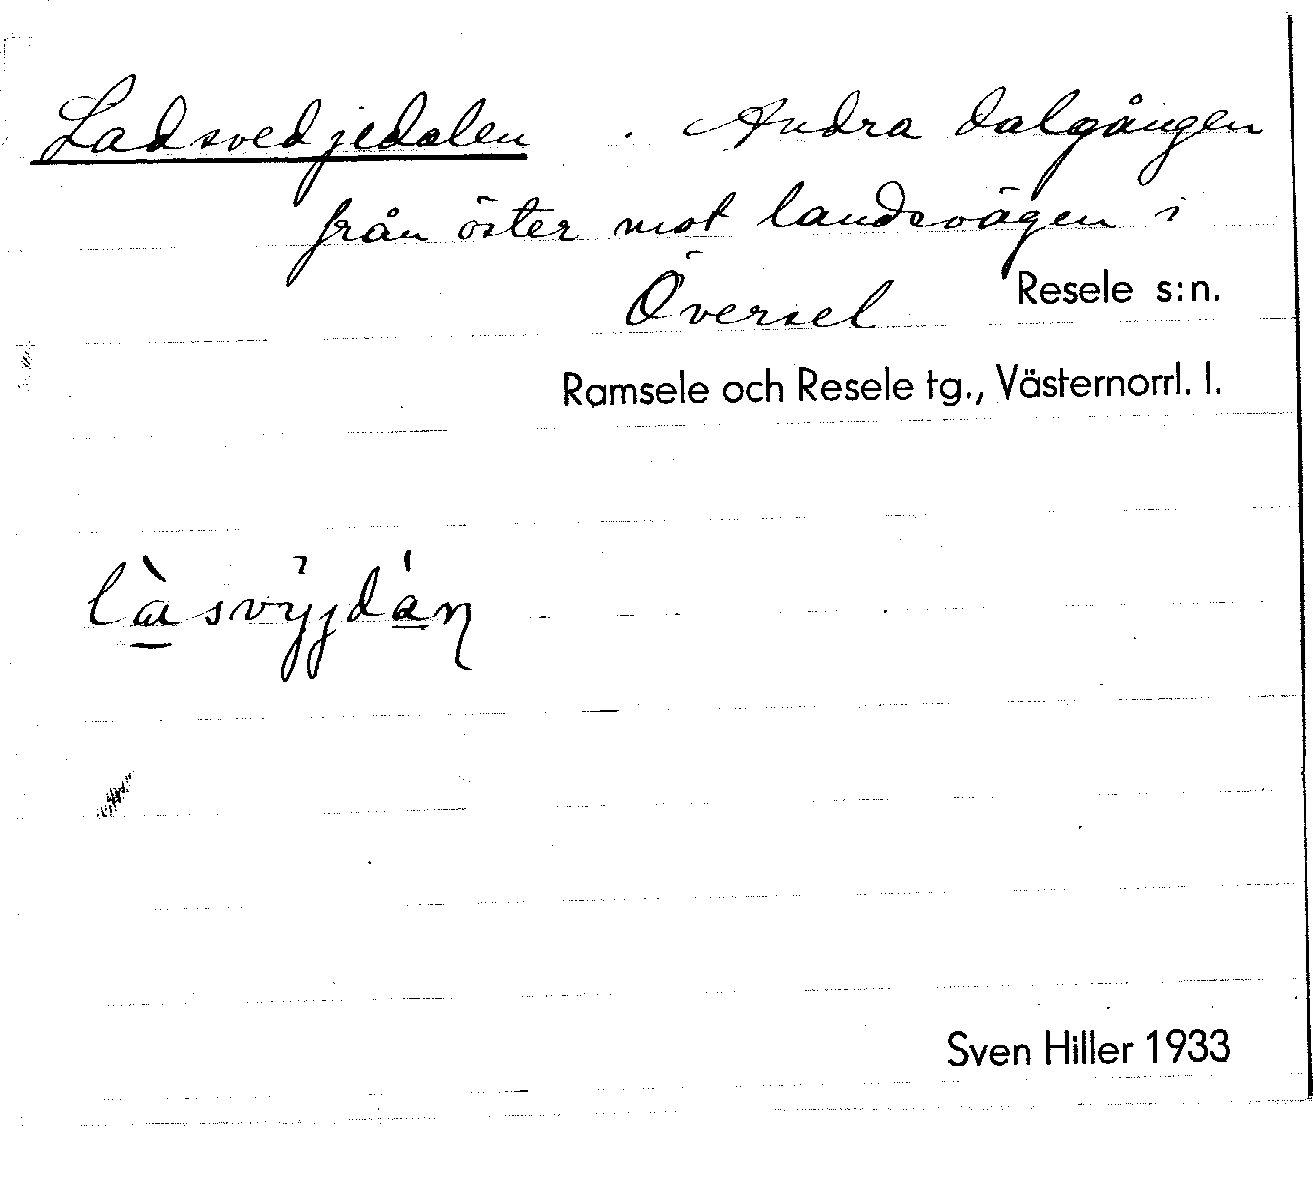 Ladsvedjedalen . Andra dalgången
från öster mot landsvägen i
Översel Resele s:n.
Ramsele och Resele tg., Västernorrl. l.
Sven Hiller 1933